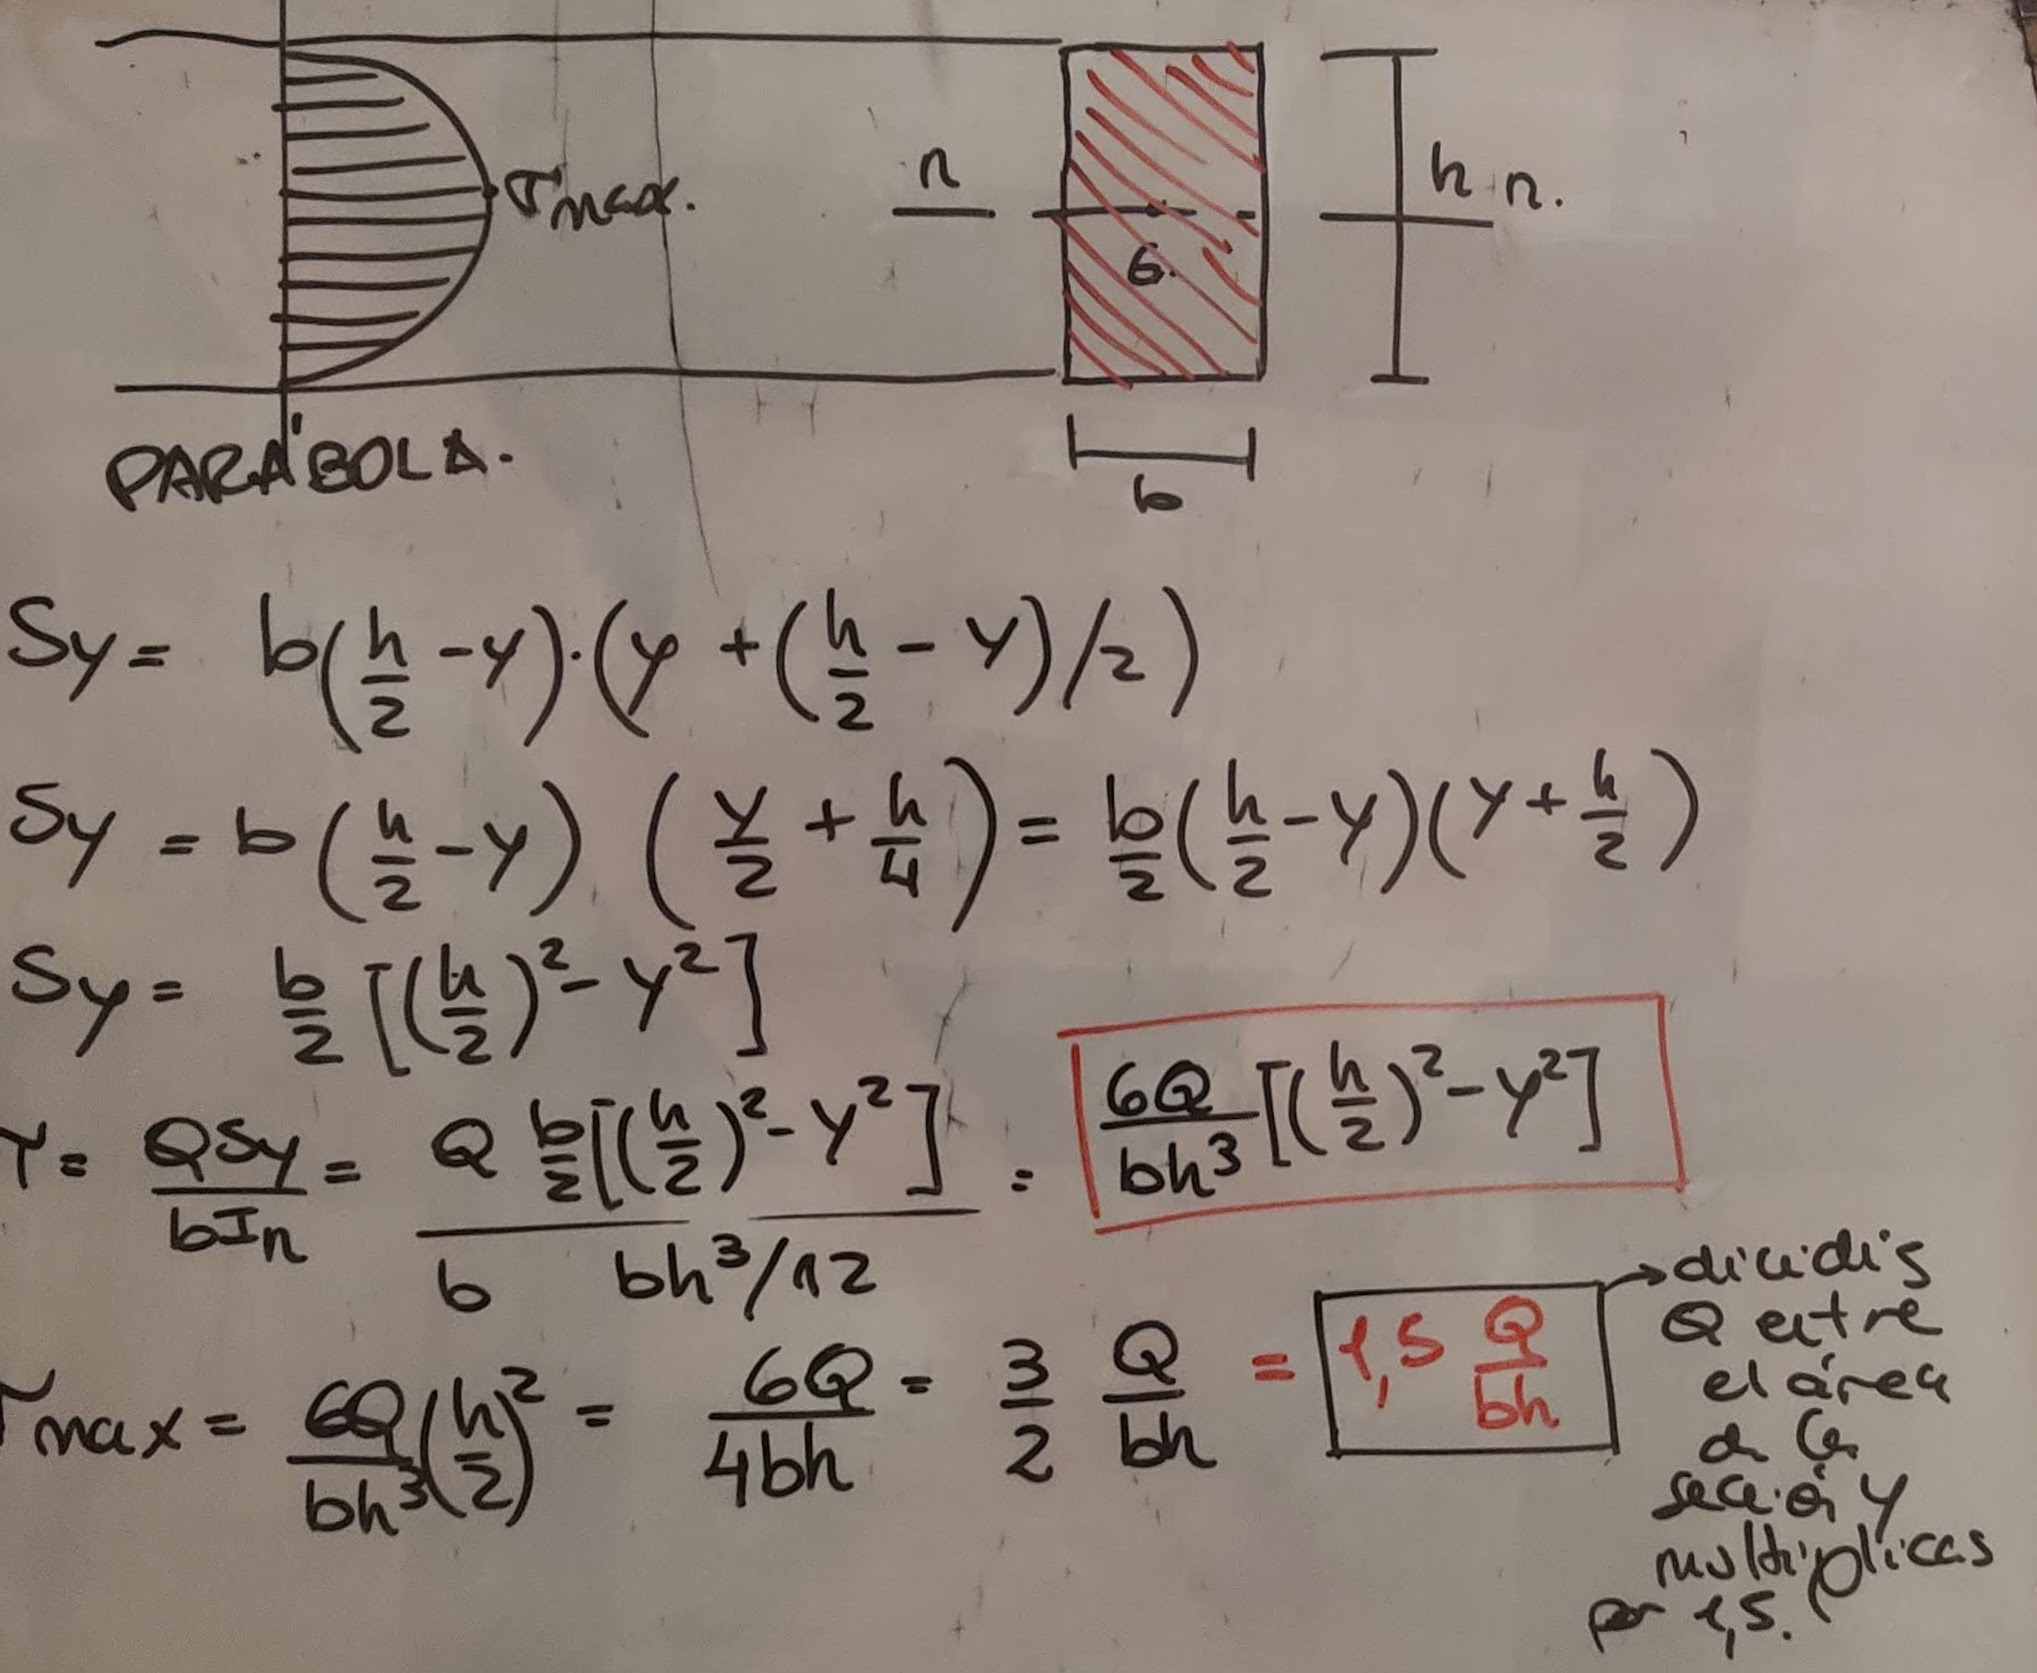 τmax.
n
h n.
G.
PARÁBOLA.
b
Sy = b(h/2 - y)·(y + (h/2 - y)/2)
Sy = b(h/2 - y) (y/2 + h/4) = b/2(h/2 - y)(y + h/2)
Sy = b/2 [(h/2)² - y²]
τ = QSy/bIn = Q b/2[(h/2)² - y²] / b bh³/12 = 6Q/bh³ [(h/2)² - y²]
τmax = 6Q/bh³ (h/2)² = 6Q/4bh = 3/2 Q/bh = 1,5 Q/bh
→ dividis
Q entre
el área
de la
sección y
multiplicas
por 1,5.